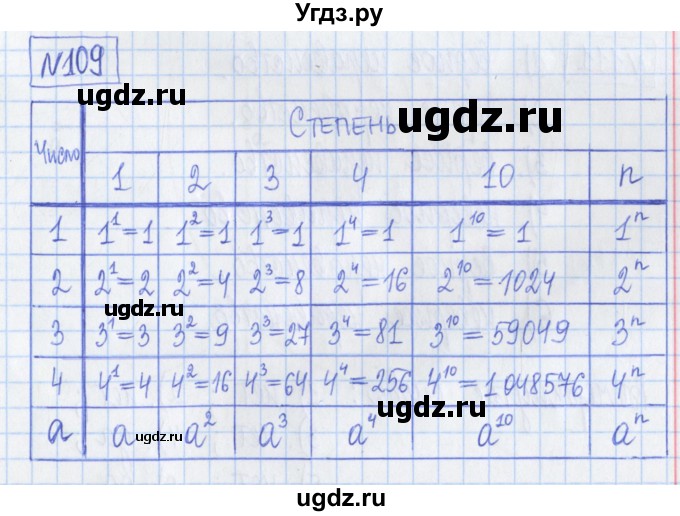 Угдз.ру
№109
ugdz.ru ugdz.ru
Число Степень ugdz.ru
1 2 3 4 10 n
1 1¹=1 1²=1 1³=1 1⁴=1 1¹⁰=1 1ⁿ
ugdz.ru
2 2¹=2 2²=4 2³=8 2⁴=16 2¹⁰=1024 2ⁿ
ugdz.ru
3 3¹=3 3²=9 3³=27 3⁴=81 3¹⁰=59049 3ⁿ
ugdz.ru
4 4¹=4 4²=16 4³=64 4⁴=256 4¹⁰=1048576 4ⁿ
ugdz.ru
a a a² a³ a⁴ a¹⁰ aⁿ
ugdz.ru ugdz.ru
ugdz.ru